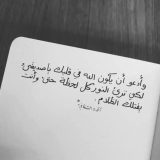 وأدعو أن يكون الله في قلبك يا صديقي
لكي ترى النور كل لحظة حتى وأنت
بفتلك الظلام.